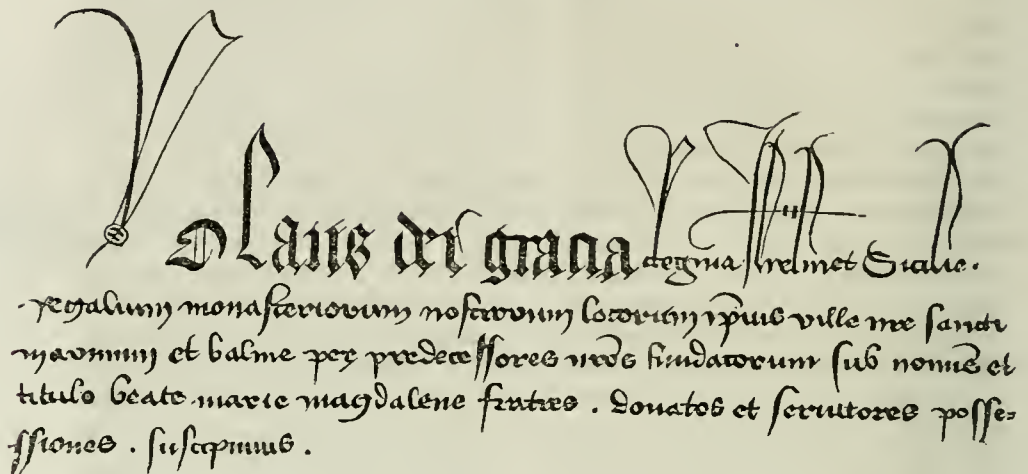 Yolans dei gracia regina Jhrlm et Sicilie .
Regalium monasteriorum nostrorum locorum ip̄ius ville nr̄e sancti
maximini et balme per predecessores nr̄os fundatorum sub nomīe et
titulo beate marie magdalene fratres . donatos et seruitores posse=
ssiones . suscipimus .